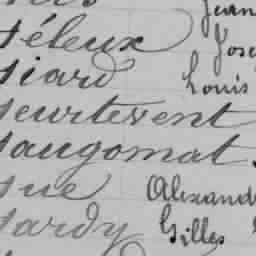 Jean
Héleux Jose
Hiard Louis
Heurtevent
Haugomat
Hue Alexand
Hardy Gilles